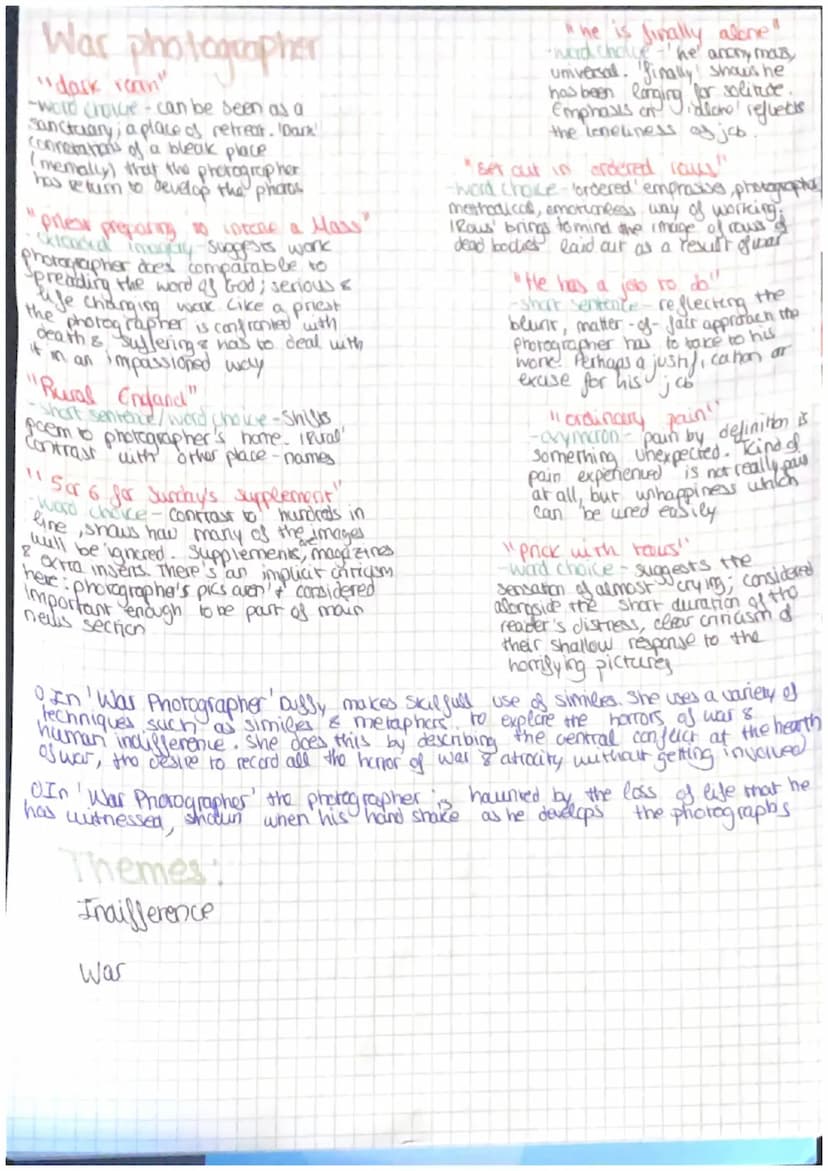 War photographer
"dark room"
-word choice - can be seen as a
sanctuary; a place of retreat. 'Dark'
connotations of a bleak place
(mentally) that the photographer
has return to develop the photos
"priest preparing to intone a Mass"
-extended imagery - suggests work
photographer does comparable to
spreading the word of God; serious &
life changing work like a priest
the photographer is confronted with
death & suffering & has to deal with
it in an impassioned way
"Rural England"
-short sentence/word choice - shifts
poem to photographer's home. 'Rural'
contrast with other place-names
"5 or 6 for Sunday's supplement"
-word choice - contrast to 'hundreds in
line', shows how many of the images
will be ignored. Supplements, magazines
& extra inserts. There's an implicit criticism
here: photographer's pics aren't considered
important enough to be part of main
news section
"he is finally alone"
-word choice - 'he' anonymous,
universal. 'finally' shows he
has been longing for solitude.
Emphasis on 'alone' reflects
the loneliness of job.
"set out in ordered rows"
-word choice - 'ordered' emphasises photographs
methodical, emotionless, way of working.
'Rows' brings to mind the image of rows of
dead bodies laid out as a result of war
"He has a job to do"
-short sentence - reflecting the
blunt, matter-of-fact approach the
photographer has to take to his
work. Perhaps a justification or
excuse for his job
"ordinary pain"
-oxymoron - pain by definition is
something unexpected. Kind of
pain experienced is not really pain
at all, but unhappiness which
can be cured easily
"prick with tears"
-word choice - suggests the
sensation of almost crying; considered
alongside the short duration of the
reader's distress, clear criticism of
their shallow response to the
horrifying pictures
○In 'War Photographer' Duffy makes skilful use of similes. She uses a variety of
techniques such as similes & metaphors to explore the horrors of war &
human indifference. She does this by describing the central conflict at the hearth
of war, the desire to record all the horror of war & atrocity without getting involved
○In 'War Photographer' the photographer is haunted by the loss of life that he
has witnessed, shown when his hand shake as he develops the photographs
Themes:
Indifference
War